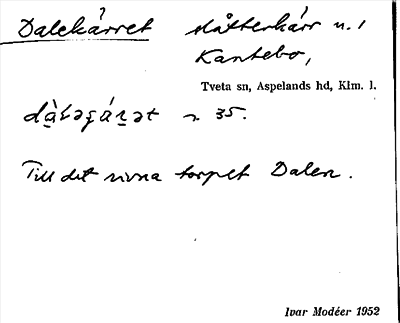 Dalekärret slåtterkärr n. 1
Kantebo,
Tveta sn, Aspelands hd, Klm. l.
n 35.
Till det rivna torpet Dalen.
Ivar Modéer 1952